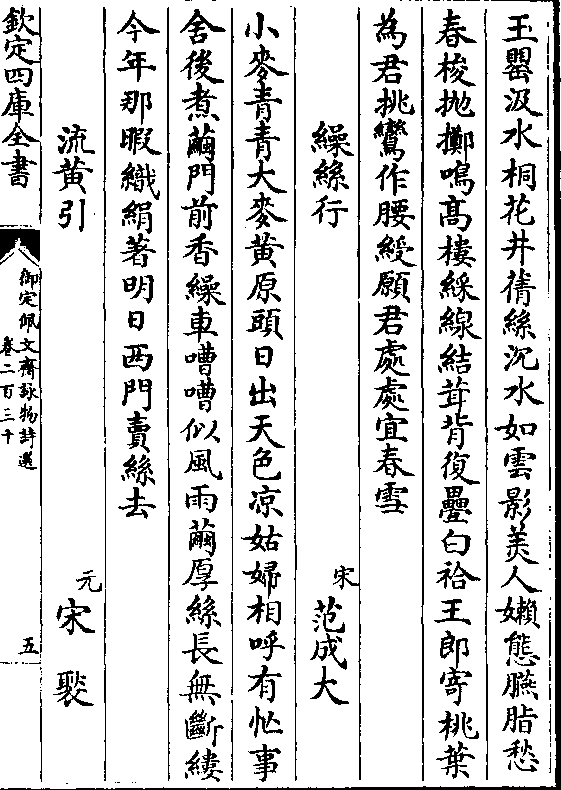 玉罌汲水桐花井蒨絲沉水如雲影美人嬾態臙脂愁
春梭抛擲鳴髙樓綵線結茸背復疊白袷王郎寄桃葉
為君挑鸞作腰綬願君處處宜春雪
繰絲行 宋 范成大
小麥青青大麥黄原頭日出天色凉姑婦相呼有忙事
舍後煮繭門前香繰車嘈嘈似風雨繭厚絲長無斷縷
今年那暇織絹著明日西門賣絲去
流黄引 元 宋褧
欽定四庫全書
御定佩文齋詠物詩選
卷二百三十
五